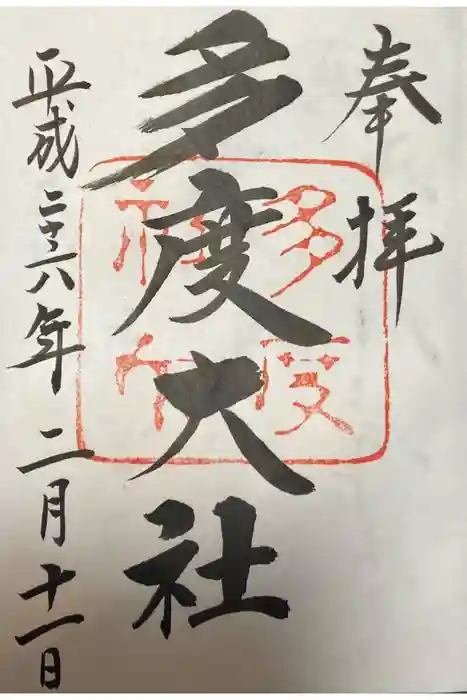 奉拝
多度大社
多度
平成二十六年二月十一日